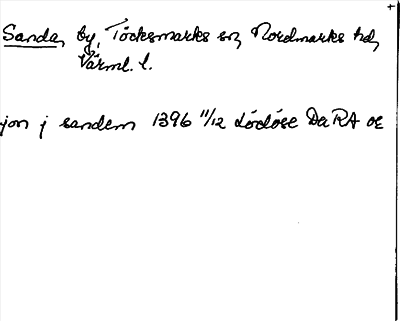 Sanda, by, Töcksmarks sn, Nordmarks hd,
Värml. l.
jon j sandem 1396 11/12 Lödöse DaRA or